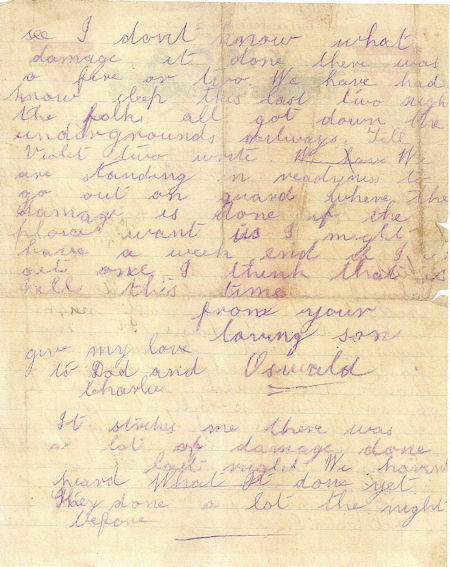 see I dont know what
damage it done there was
a fire or two We have had
know sleep this last two night
the folk all got down the
undergrounds railways. Tell
Violet two write We have We
are standing in readyness to
go out on guard where the
damage is done if the
place want us I might
have a week end if I
get one I think that is
all this time
from your
loving son
give my love
to Dad and Oswald
Charlie
It strikes me there was
a lot of damage done
last night We havent
heard What It done yet
They done a lot the night
before